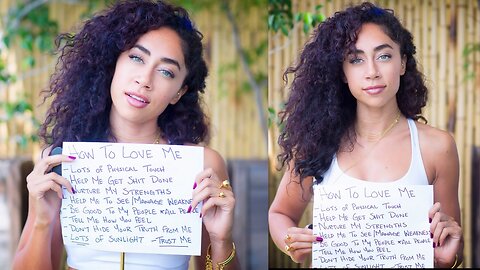 HOW TO LOVE ME
- LOTS OF PHYSICAL TOUCH
- HELP ME GET SHIT DONE
- NURTURE MY STRENGTHS
- HELP ME TO SEE / MANAGE WEAKNE
- BE GOOD TO MY PEOPLE + ALL PEO
- TELL ME HOW YOU FEEL
- DON'T HIDE YOUR TRUTH FROM ME
- LOTS OF SUNLIGHT - TRUST ME
HOW TO LOVE ME
- LOTS OF PHYSICAL TOUCH
- HELP ME GET SHIT DONE
- NURTURE MY STRENGTHS
HELP ME TO SEE / MANAGE WEAKNE
BE GOOD TO MY PEOPLE + ALL PEO
TELL ME HOW YOU FEEL
DON'T HIDE YOUR TRUTH FROM
LOTS OF SUNLIGHT - TRUST ME